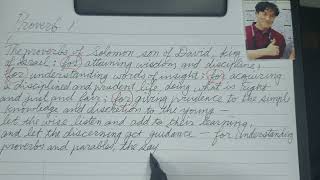 Proverb 1
The proverbs of Solomon son of David, king
of Israel : for attaining wisdom and discipline;
for understanding words of insight; for acquiring
a disciplined and prudent life, doing what is right
and just and fair; for giving prudence to the simple
knowledge and discretion to the young —
let the wise listen and add to their learning,
and let the discerning get guidance — for understanding
proverbs and parables, the say